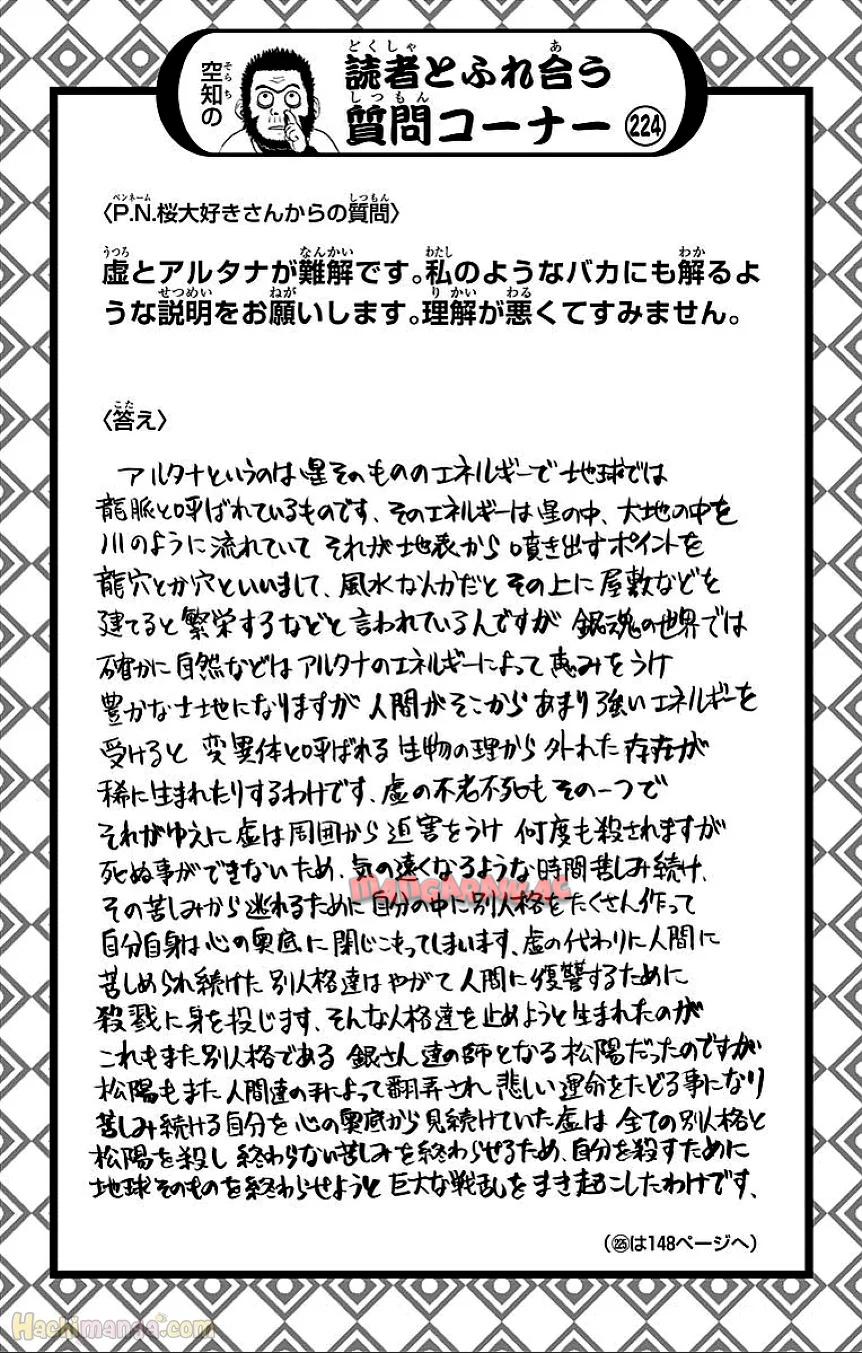 空知の
読者とふれ合う
質問コーナー 224
〈P.N.桜大好きさんからの質問〉
虚とアルタナが難解です。私のようなバカにも解るよ
うな説明をお願いします。理解が悪くてすみません。
〈答え〉
アルタナというのは星そのもののエネルギーで地球では
龍脈と呼ばれているものです、そのエネルギーは星の中、大地の中を
川のように流れていて それが地表から噴き出すポイントを
龍穴とか穴といいまして、風水なんかだとその上に屋敷などを
建てると繁栄するなどと言われているんですが 銀魂の世界では
確かに自然などはアルタナのエネルギーによって恵みをうけ
豊かな土地になりますが人間がそこからあまり強いエネルギーを
受けると 変異体と呼ばれる生物の理から外れた存在が
稀に生まれたりするわけです、虚の不老不死もその一つで
それがゆえに虚は周囲から迫害をうけ 何度も殺されますが
死ぬ事ができないため、気の遠くなるような時間苦しみ続け、
その苦しみから逃れるために自分の中に別人格をたくさん作って
自分自身は心の奥底に閉じこもってしまいます、虚の代わりに人間に
苦しめられ続けた別人格達はやがて人間に復讐するために
殺戮に身を投じます、そんな人格達を止めようと生まれたのが
これもまた別人格である 銀さん達の師となる松陽だったのですが
松陽もまた人間達の手によって翻弄され 悲しい運命をたどる事になり
苦しみ続ける自分を心の奥底から見続けていた虚は 全ての別人格と
松陽を殺し 終わらない苦しみを終わらせるため、自分を殺すために
地球そのものを終わらせようと巨大な戦乱をまき起こしたわけです、
(225は148ページへ)
MANGARAWJAC
Hachimanda.com